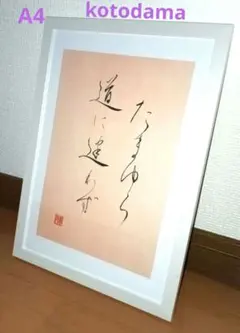 A4 kotodama
たまゆら
道に違わず